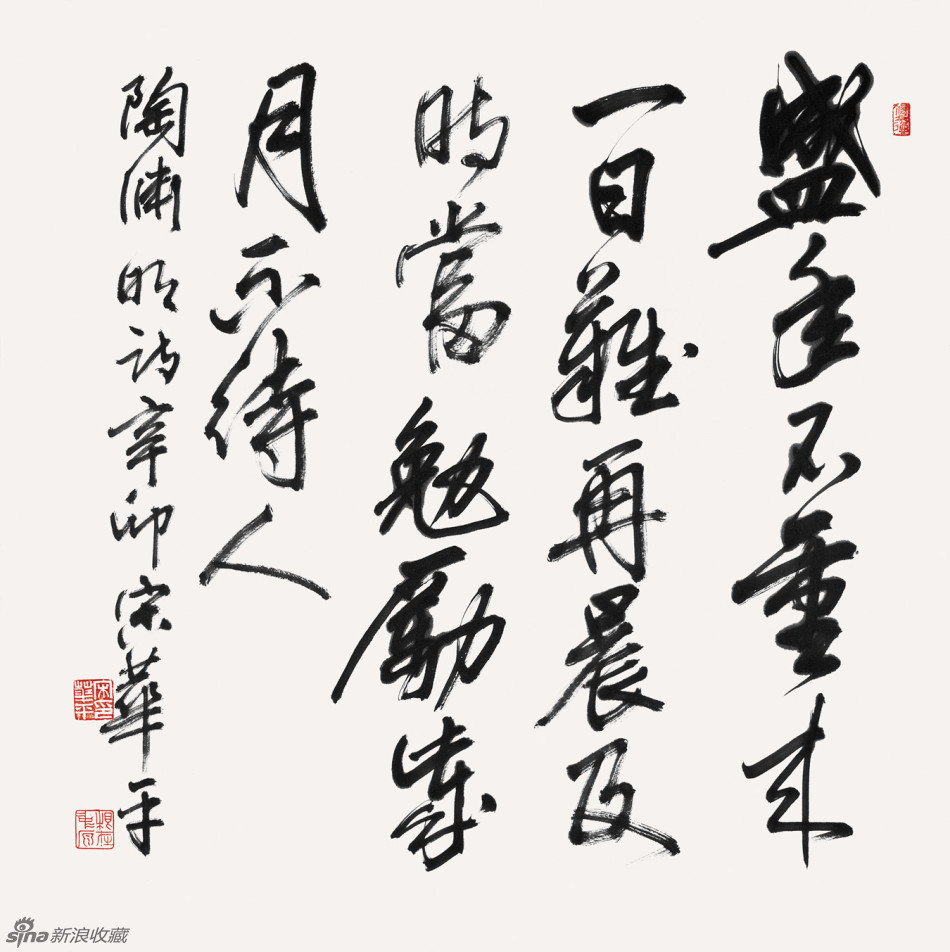 盛年不重来
一日難再晨及
時當勉勵歲
月不待人
陶渊明诗辛卯宋華平
sina新浪收藏